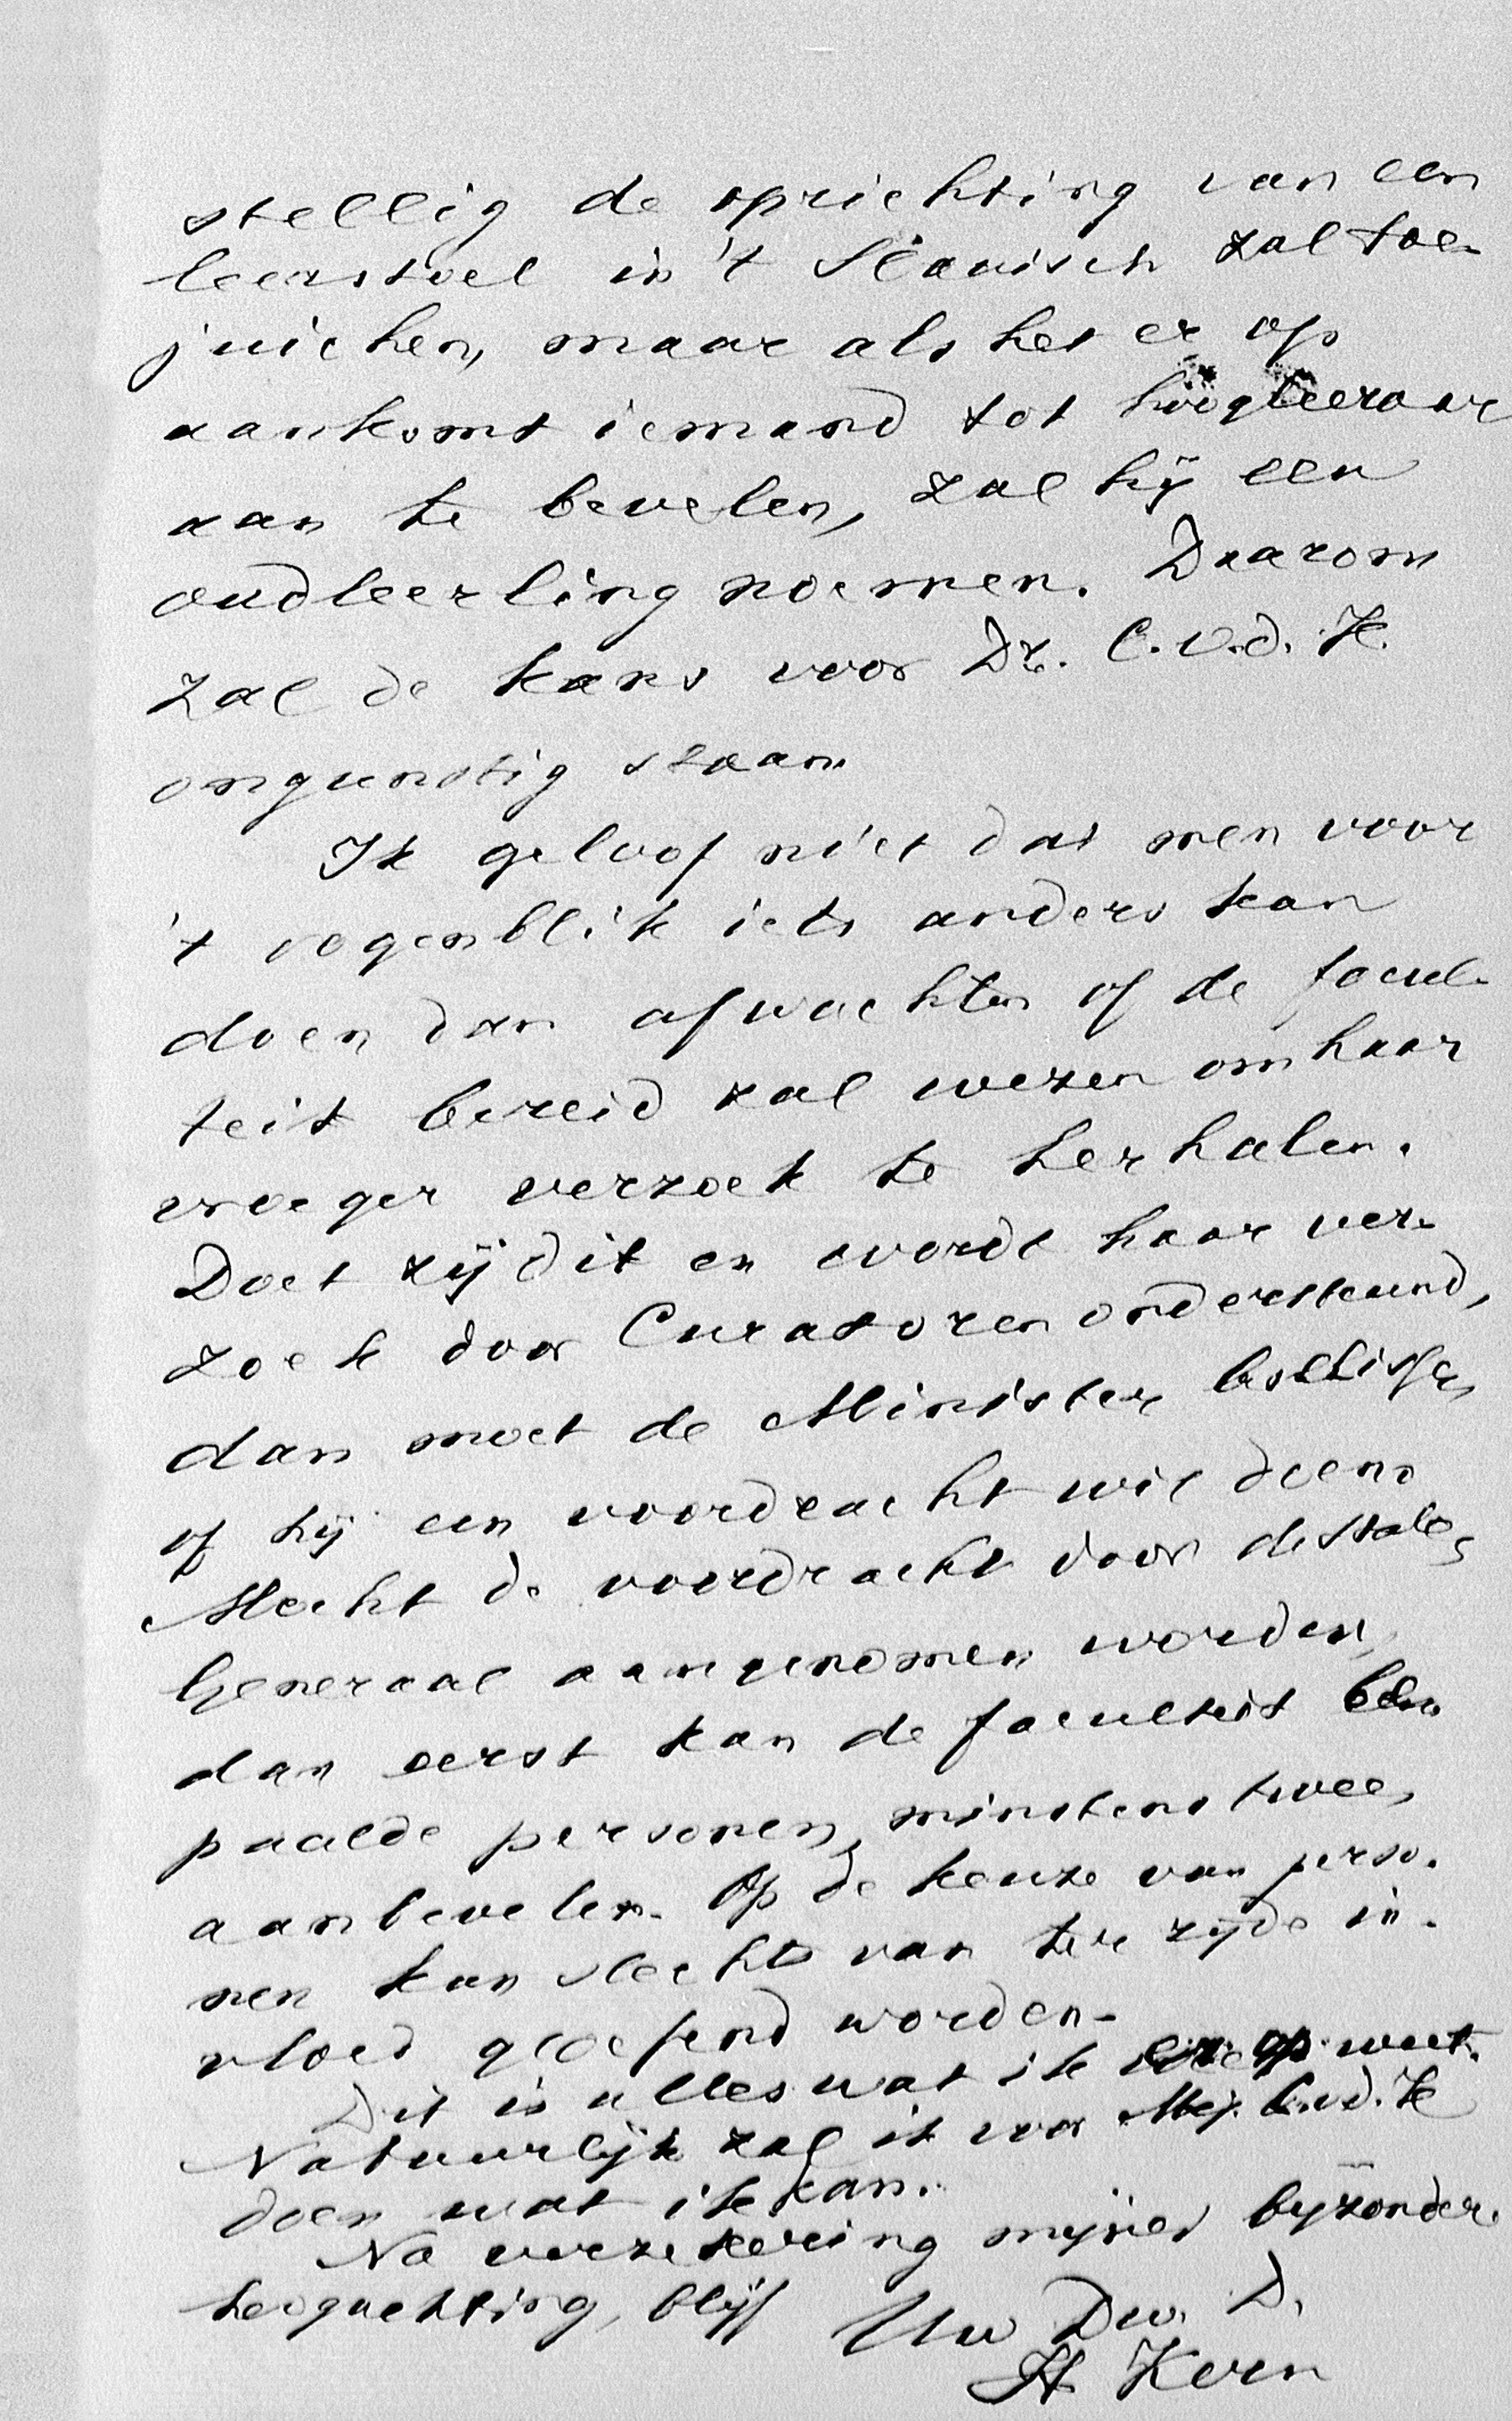 stellig de oprichting van een
leerstoel in 't Slavisch zal toe-
juichen, maar als het er op
aankomt iemand tot hoogleeraar
aan te bevelen, zal hij een
oudleerling noemen. Daarom
zal de kans voor Dr. C. v. d. K.
ongunstig staan.
Ik geloof niet dat men voor
't oogenblik iets anders kan
doen dan afwachten of de facul-
teit bereid zal wezen om haar
vroeger verzoek te herhalen.
Doet zij dit en wordt haar ver-
zoek door Curatoren ondersteund,
dan moet de Minister beslissen,
of hij een voordracht wil doen.
Mocht de voordracht door de Staten
Generaal aangenomen worden,
dan eerst kan de faculteit be-
paalde personen, minstens twee,
aanbevelen. Op de keuze van perso-
nen kan slechts van ter zijde in-
vloed geoefend worden.
Dit is alles wat ik er op weet.
Natuurlijk zal ik voor Mej. C. v. d. K
doen wat ik kan.
Na verzekering mijner bijzondere
hoogachting, blijf Uw Dw. D.
H Kern